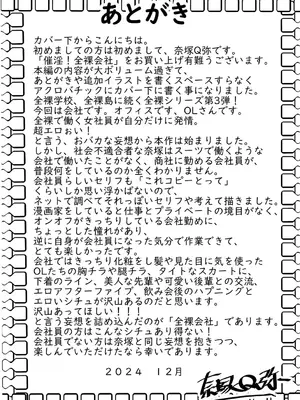 あとがき
カバー下からこんにちは。
初めましての方は初めまして、奈塚Q弥です。
「催淫！全裸会社」をお買い上げ有難うございます。
本編の内容が大ボリューム過ぎて、
あとがきや追加イラストを書くスペースすらなく
アクロバチックにカバー下に書く事になりました。
全裸学校、全裸島に続く全裸シリーズ第3弾！
今回は会社です。オフィスです、OLさんです。
全裸で働く女社員が自分だけに発情。
超エロぉい！
と言う、おバカな妄想から本作は始まりました。
しかし、社会不適合者な奈塚はスーツで働くような
会社で働いたことがなく、商社に勤める会社員が、
普段何をしているのか全くわかりません。
会社員らしいセリフも「これコピーとって」
くらいしか思い浮かばないので、
ネットで調べてそれっぽいセリフを考えて描きました。
漫画家をしていると仕事とプライベートの境目がなく、
オンオフがきっちりしている会社勤めに、
ちょっとした憧れがあり、
逆に自身が会社員になった気分で作業できて、
とても楽しかったです。
会社ではきっちり化粧をし髪や見た目に気を使った
OLたちの胸チラや腿チラ、タイトなスカートに、
下着のライン、美人な先輩や可愛い後輩との交流、
エロアフターファイブ、飲み会後のハプニングと
エロいシチュが沢山あるのだと思います。
沢山あってほしい！！！
と言う妄想を詰め込んだのが「全裸会社」であります。
会社員の方はこんなシチュあり得ない！
会社員でない方は奈塚と同じ妄想を抱きつつ、
楽しんでいただけたなら幸いであります。
2024 12月
奈塚Q弥